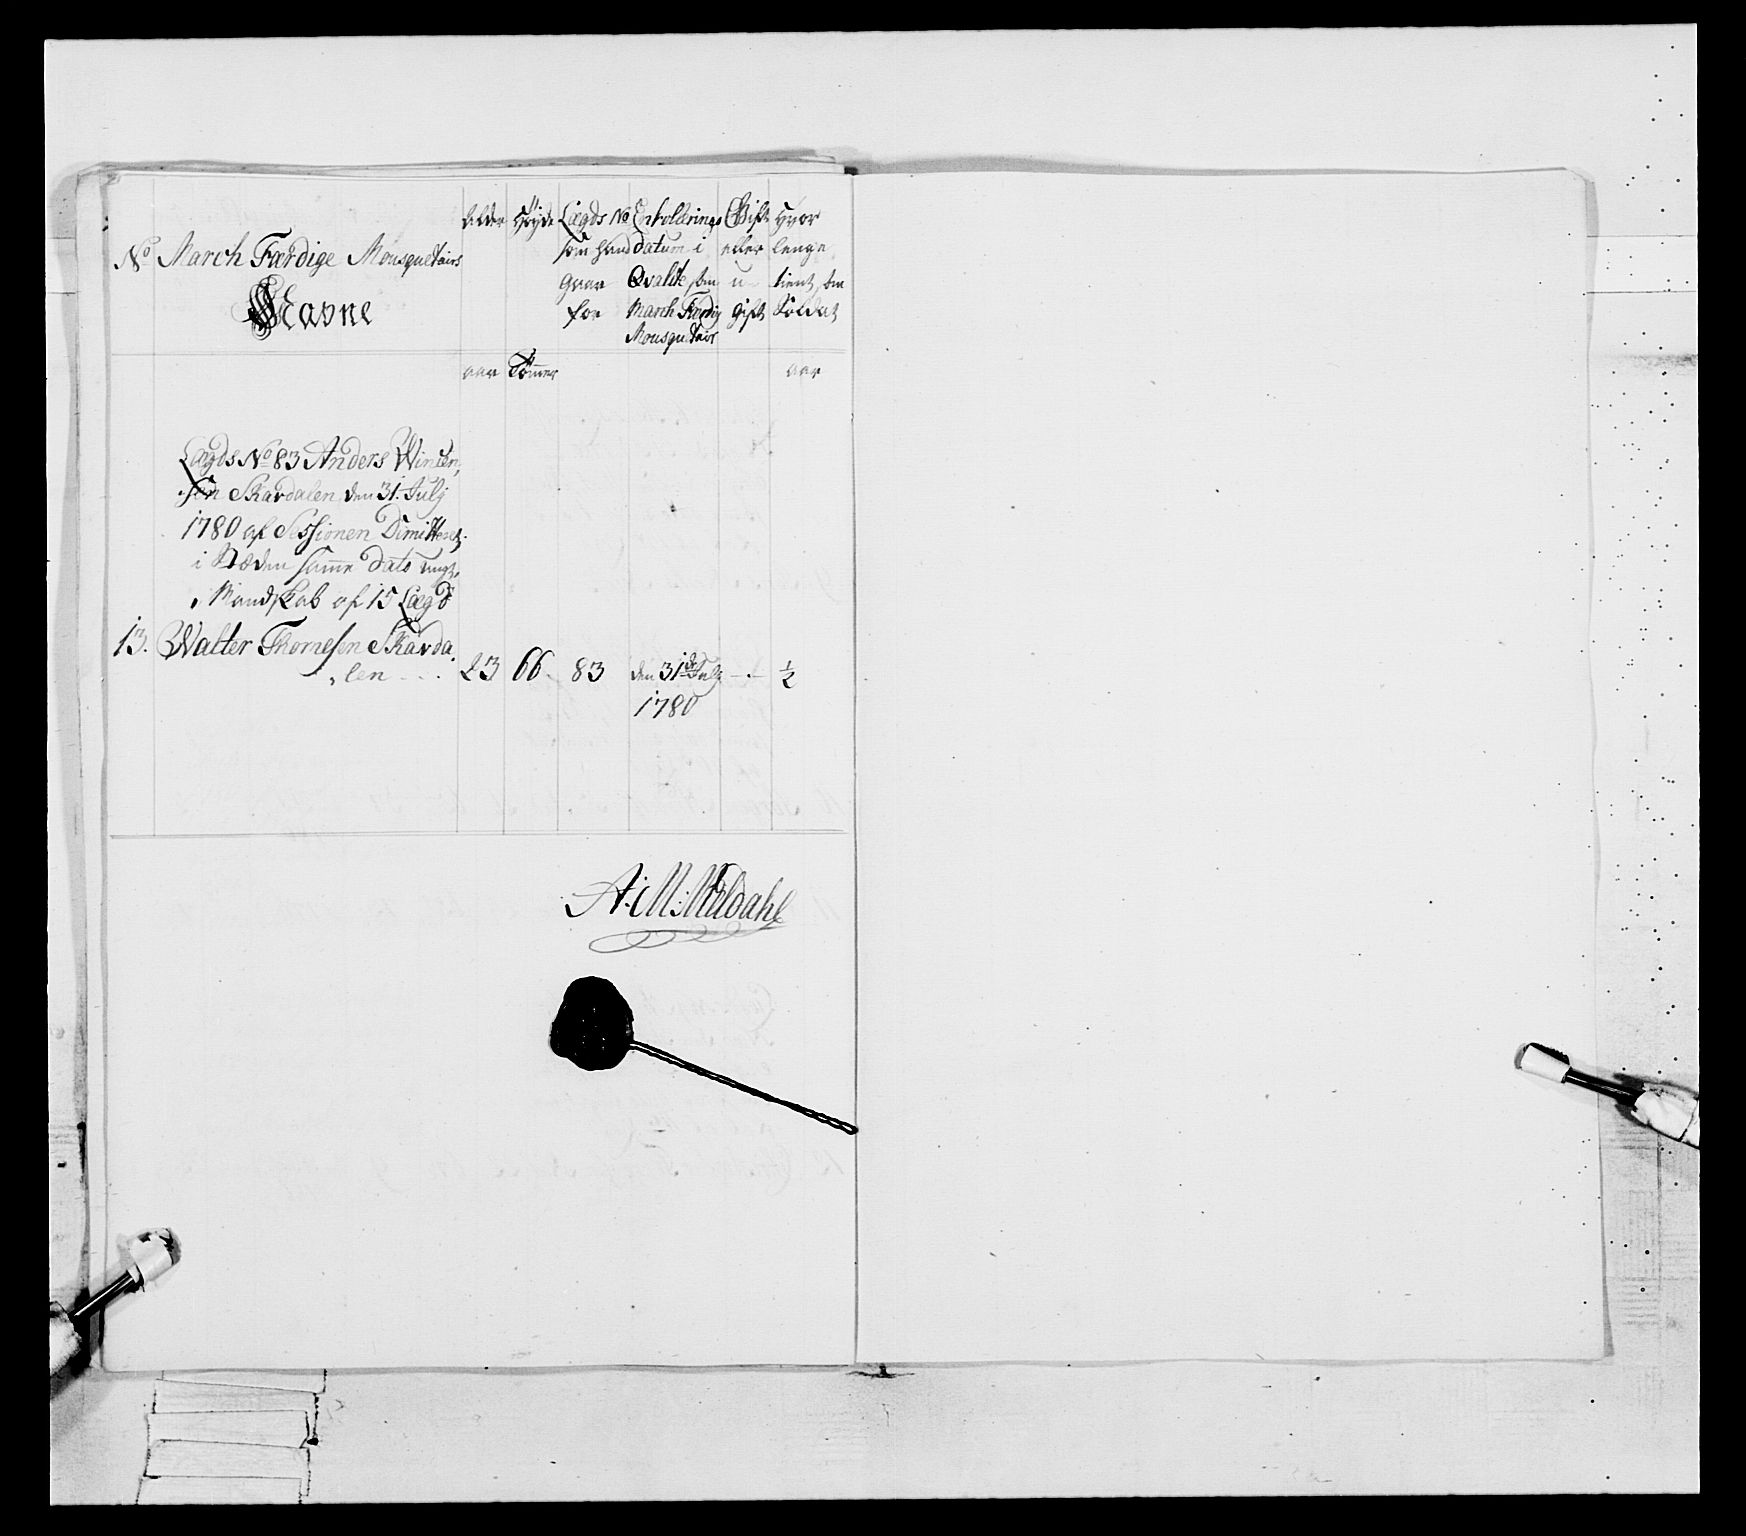 No March Færdige Mousquetairs
Navne
alder
Høyde
Lægds No
som hand
gvar
for
Enrollerings
datum i
Qvalite, som
March Færdig
Mousquetair
Gift
eller
u-
gift
Hvor
lenge
tient som
Soldat
aar
Tommer
aar
Lægds No 83 Anders Winten,
,sen Skavdalen den 31. Julij
1780 af Sessionen Dimitteret.
i Stæden samme Dato ungt,
, Mandskab af 15 Lægd
13. Walter Thornesen Skavda,
,len - - . 23 66. 83 den 31de Julij - . - ½
1780
A: M: Meldahl